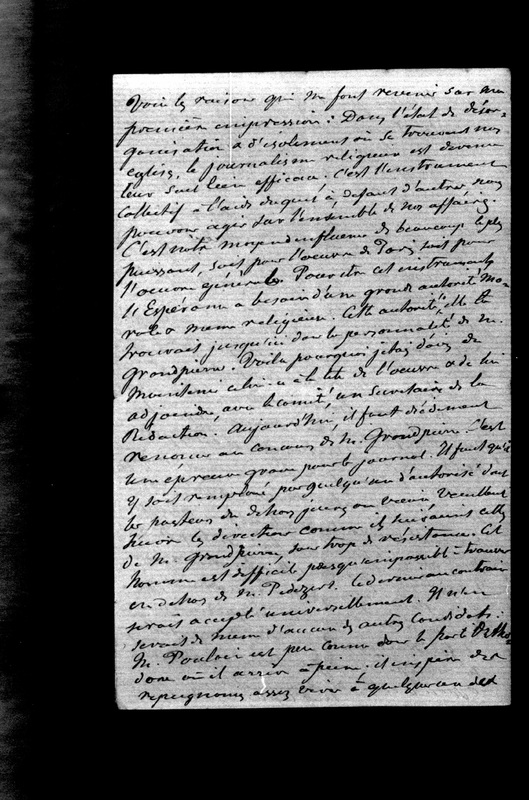 Voici les raisons qui me font revenir sur ma
première impression : Dans l'état de désor-
ganisation & d'isolement où se trouvent nos
églises, le journalisme religieux est devenu
leur seul lien efficace. C'est l'instrument
collectif à l'aide duquel à défaut d'autres, nous
pouvons agir sur l'ensemble de nos affaires.
C'est notre moyen d'influence de beaucoup le plus
puissant, soit pour l'oeuvre de Paris, soit pour
l'oeuvre générale. Pour être cet instrument,
l'Espérance a besoin d'une grande autorité mo-
rale & même religieuse. Cette autorité, elle la
trouvait jusqu'ici dans la personnalité de M.
Grandpierre. Voilà pourquoi j'étais d'avis de
maintenir celui-ci à la tête de l'oeuvre & de lui
adjoindre, avec le comité, un Secrétaire de la
Rédaction. Aujourd'hui, il faut décidément
renoncer au concours de M. Grandpierre. C'est
une épreuve grave pour le journal. Il faut qu'il
y soit remplacé par quelqu'un d'autorisé dont
les pasteurs du dehors
la direction comme ils suivaient celle
de M. Grandpierre, sans trop de résistance. Cet
homme est difficile presqu'impossible à trouver
en dehors de M. Pédézert. Ce dernier au contraire
serait accepté universellement. Il n'en
serait de même d'aucun des autres candidats :
M. Poulain est peu connu dans le parti Ortho-
doxe où il arrive à peine : il inspire des
répugnances assez vives à quelques-uns des